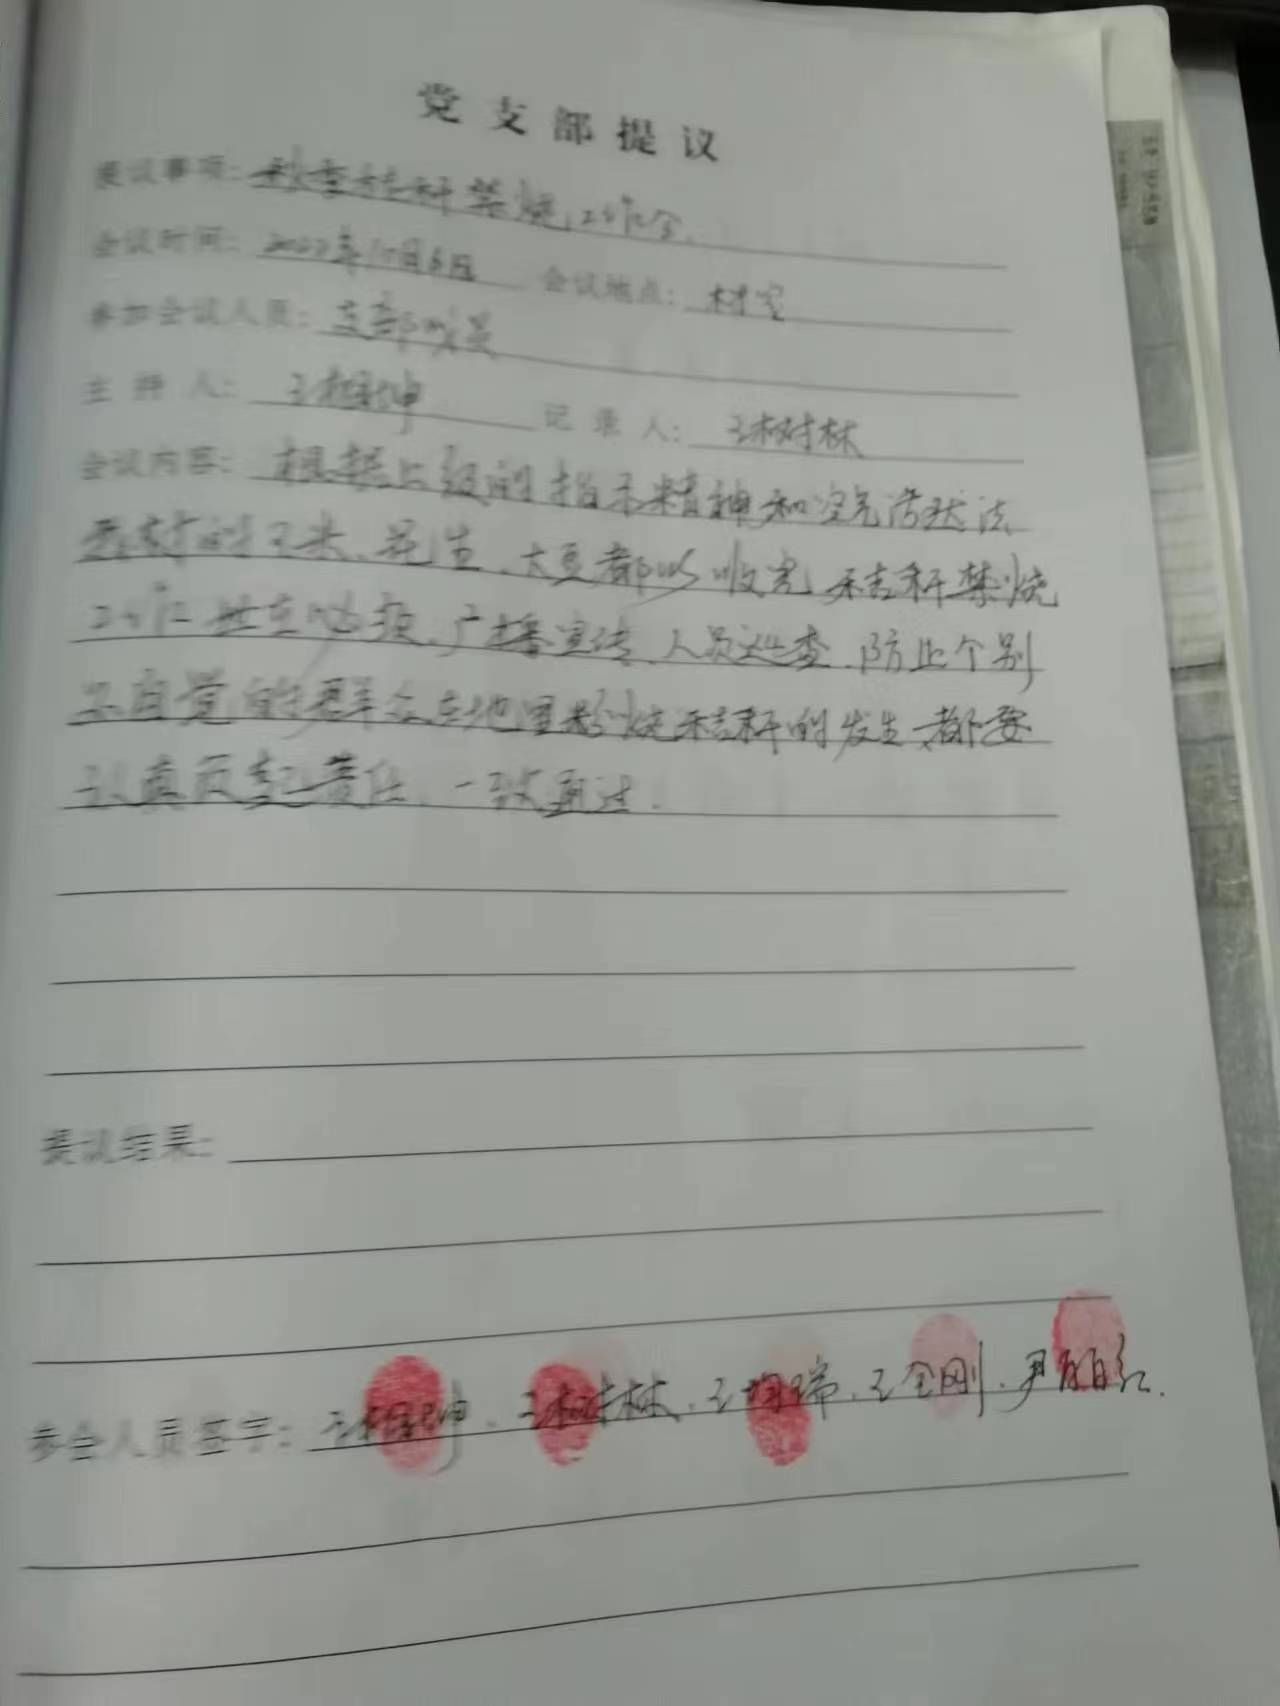 党支部提议
提议事项：秋季秸秆禁烧工作会.
会议时间：2022年10月6日 会议地点：村室
参加会议人员：支部成员
主持人： 记录人：王树林
会议内容：根据上级的指示精神和空气污染法
我村的玉米、花生、大豆都以收完 秸秆禁烧
工作 势在必须、广播宣传、人员巡查、防止个别
不自觉的群众在地里焚烧秸秆的发生，都要
认真负起责任、一致通过.
提议结果：
参会人员签字： 王树林、王金刚、尹丽红.